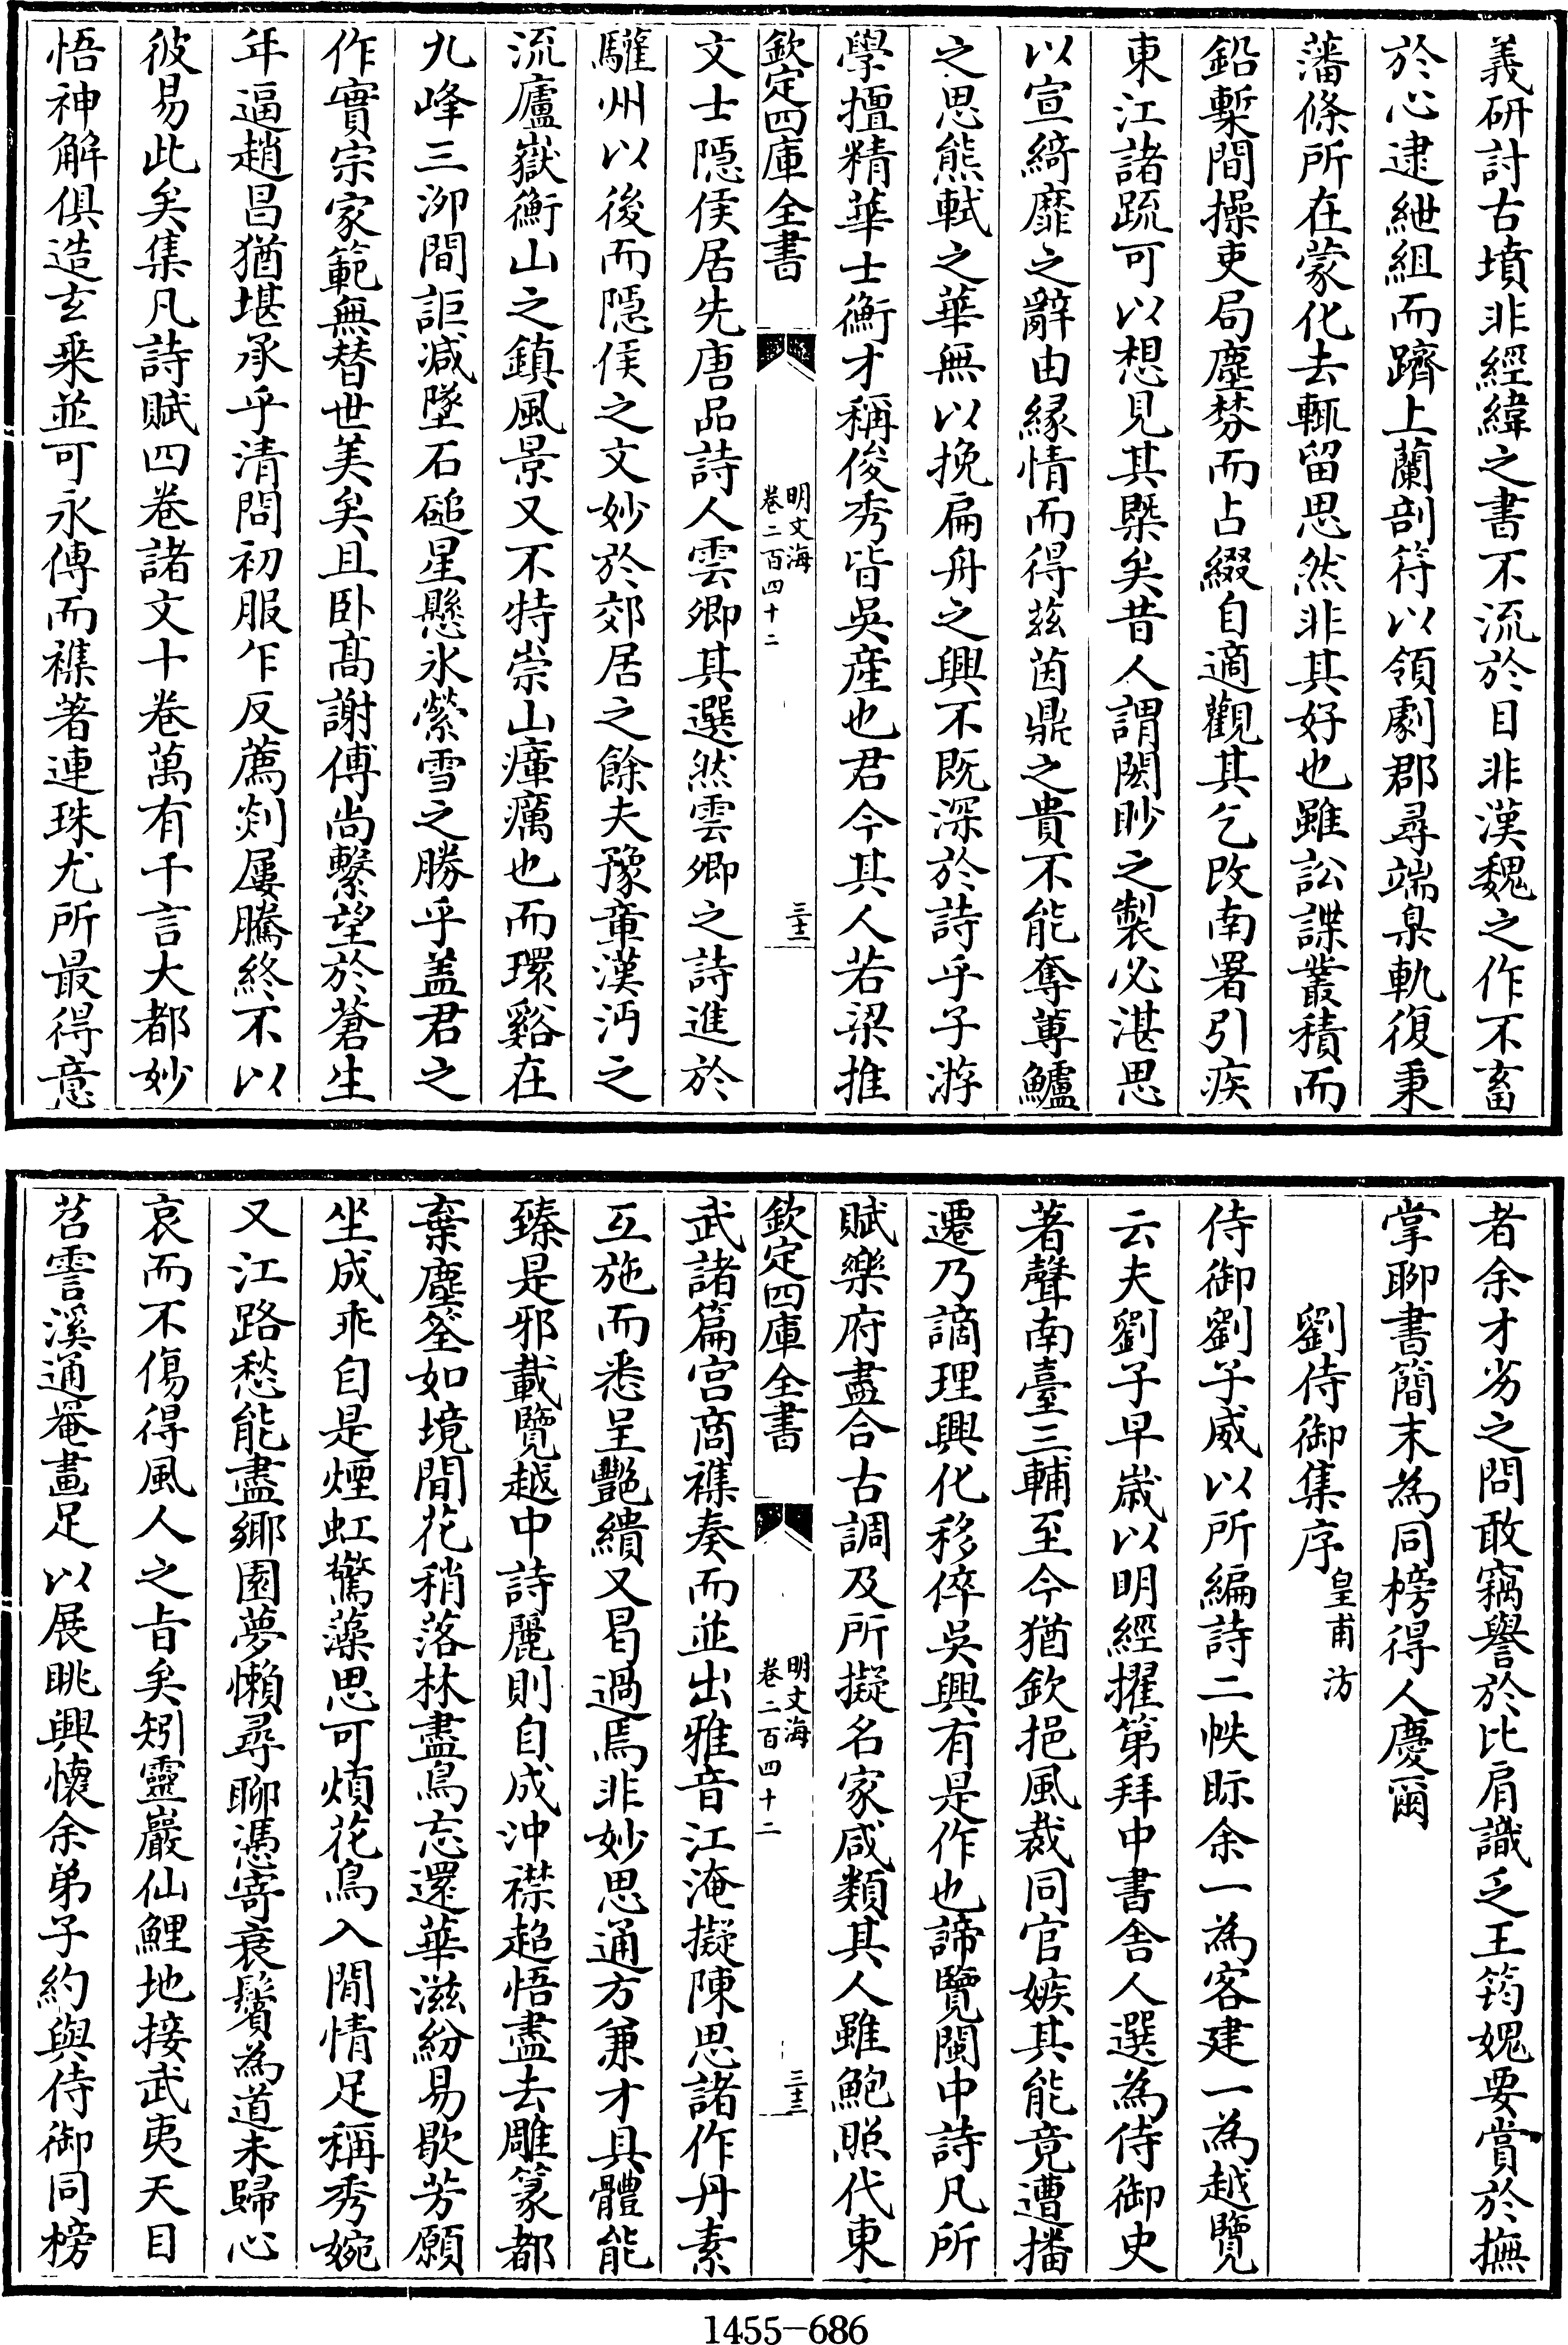 義研討古墳非經緯之書不流於目非漢魏之作不畜
於心逮紲組而躋上蘭剖符以領劇郡尋端臬軌復秉
藩條所在蒙化去輒留思然非其好也雖訟諜叢積而
鉛槧間操吏局塵棼而占綴自適觀其乞改南署引疾
東江諸疏可以想見其槩矣昔人謂閎眇之製必湛思
以宣綺靡之辭由緣情而得茲茵鼎之貴不能奪蓴鱸
之思熊軾之華無以挽扁舟之興不既深於詩乎子游
學擅精華士衡才稱俊秀皆吳産也君今其人若梁推
欽定四庫全書
明文海
卷二百四十二
三十二
文士隱侯居先唐品詩人雲卿其選然雲卿之詩進於
驩州以後而隱侯之文妙於郊居之餘夫豫章漢沔之
流廬嶽衡山之鎮風景又不特崇山瘴癘也而環谿在
九峰三泖間詎减墜石磓星懸氷縈雪之勝乎盖君之
作實宗家範無替世美矣且卧髙謝傅尚繫望於蒼生
年逼趙昌猶堪承乎清問初服乍反薦剡屢騰終不以
彼易此矣集凡詩賦四卷諸文十卷萬有千言大都妙
悟神解俱造玄乘並可永傳而襍著連珠尤所最得意
者余才劣之問敢竊譽於比肩識乏王筠媿要賞於撫
掌聊書簡末為同榜得人慶爾
劉侍御集序皇甫汸
侍御劉子威以所編詩二帙眎余一為客建一為越覽
云夫劉子早嵗以明經擢第拜中書舍人選為侍御史
著聲南臺三輔至今猶欽挹風裁同官嫉其能竟遭播
遷乃謫理興化移倅吳興有是作也諦覽閩中詩凡所
賦樂府盡合古調及所擬名家咸類其人雖鮑照代東
欽定四庫全書
明文海
卷二百四十二
三十三
武諸篇宫商襍奏而並出雅音江淹擬陳思諸作丹素
互施而悉呈艷繢又曷過焉非妙思通方兼才具體能
臻是邪載覽越中詩麗則自成沖襟超悟盡去雕篆都
棄塵筌如境間花稍落林盡鳥忘還華滋紛易歇芳願
坐成乖自是煙虹驚藻思可煩花鳥入閒情足稱秀婉
又江路愁能盡鄉園夢懶尋聊憑寄衰鬢為道未歸心
哀而不傷得風人之㫖矣矧靈巖仙鯉地接武夷天目
苕霅溪通菴畫足以展眺興懷余弟子約與侍御同榜
1455-686